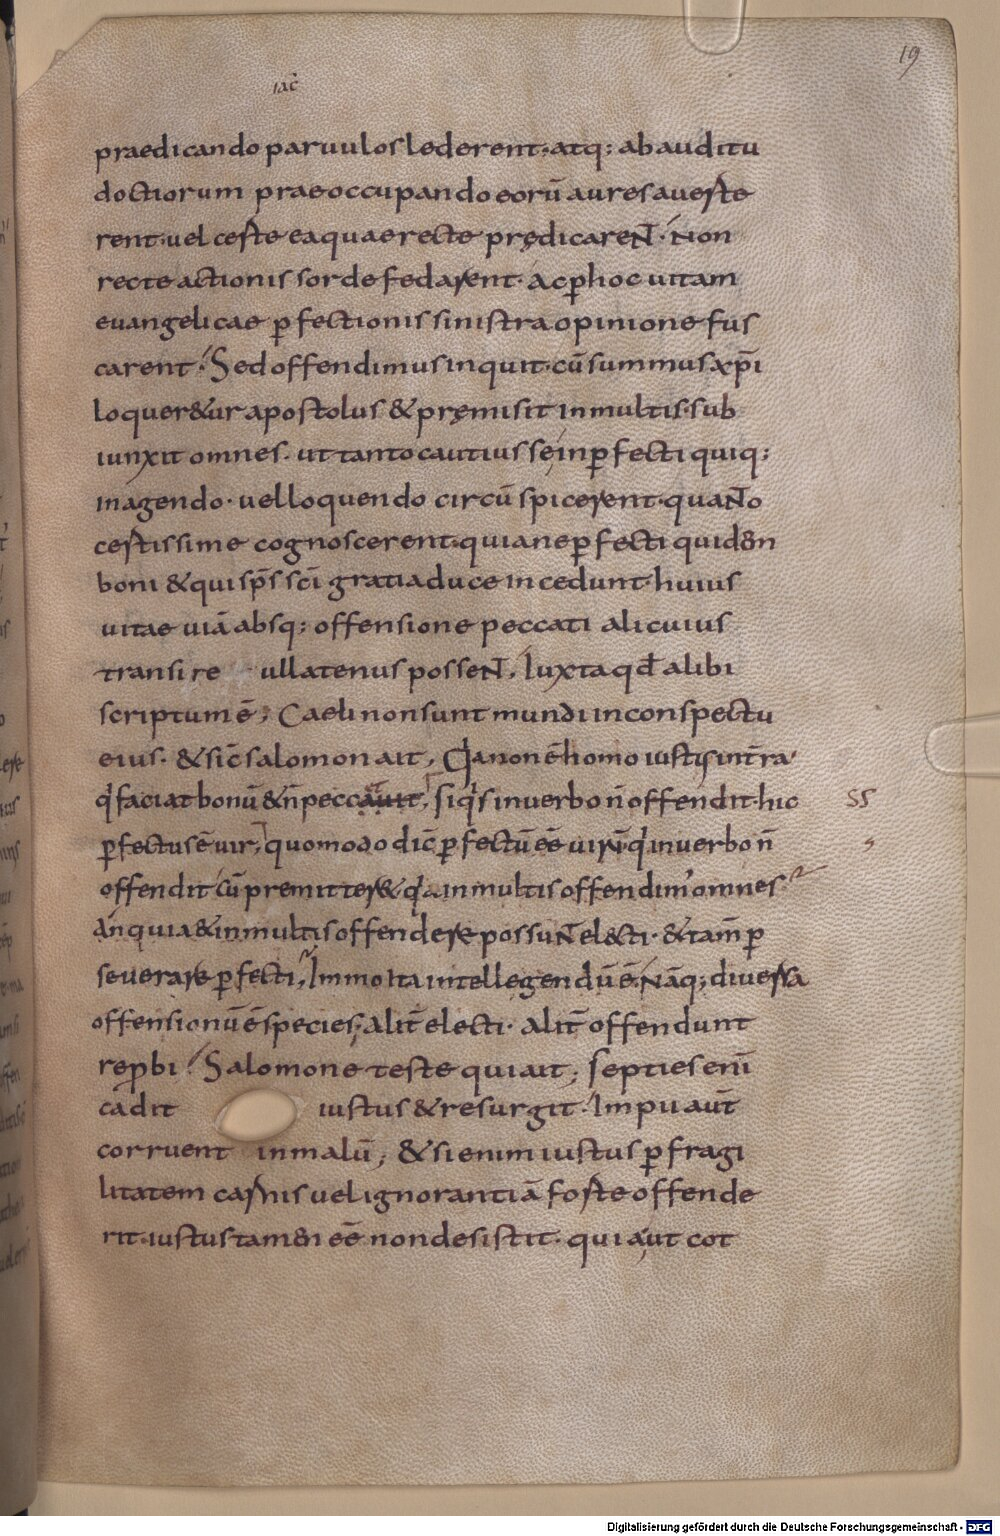 19
iac̄
praedicando paruulos lederent. atq; ab auditu
doctiorum praeoccupando eorū aures auerte
rent. uel certe ea quae recte prędicareNT. Non
recte actionis sorde fedarent. Ac ꝑ hoc uitam
euangelicae ꝑfectionis sinistra opinione fus
carent. Sed offendimus inquit. cū summus xp̄i
loquer&ur apostolus & pręmisit in multis. sub
iunxit omnes. ut tanto cautius se inꝑfecti quiq;
in agendo. uel loquendo circūspicerent. quaNTo
certissime cognoscerent. quia ne ꝑfecti quidem
boni & qui sp̄s sc̄i gratia duce incedunt. huius
uitae uiā absq; offensione peccati alicuius
transire ullatenus posseNT. Iuxta qd̄ alibi
scriptum ē; Caeli non sunt mundi in conspectu
eius. & sic̄ salomon ait, Quia non ē homo iustus in tr̄ra
q' faciat bonū & n̄ peccauit, si q's in uerbo n̄ offendit. hic
ꝑfectus ē uir, quomodo dic̄ ꝑfectū eē uirū q' in uerbo n̄
offendit cū premitter& q'a in multis offendim' omnes.
An quia & in multis offendere possuNT elẹcti. & tam̄ ꝑ
seuerare ꝑfecti, Immo ita intellegendū ē. Nāq; diuersa
offensionū ē species, alit̄ electi. alit̄ offendunt
rep̄bi. Salomone teste qui ait; septies eni
cadit iustus & resurgit. Impii aut̄
corruent in malū; & si enim iustus ꝑ fragi
litatem carnis uel ignorantiā forte offende
rit. iustus tamen eē non desistit. quia ut cot
SS